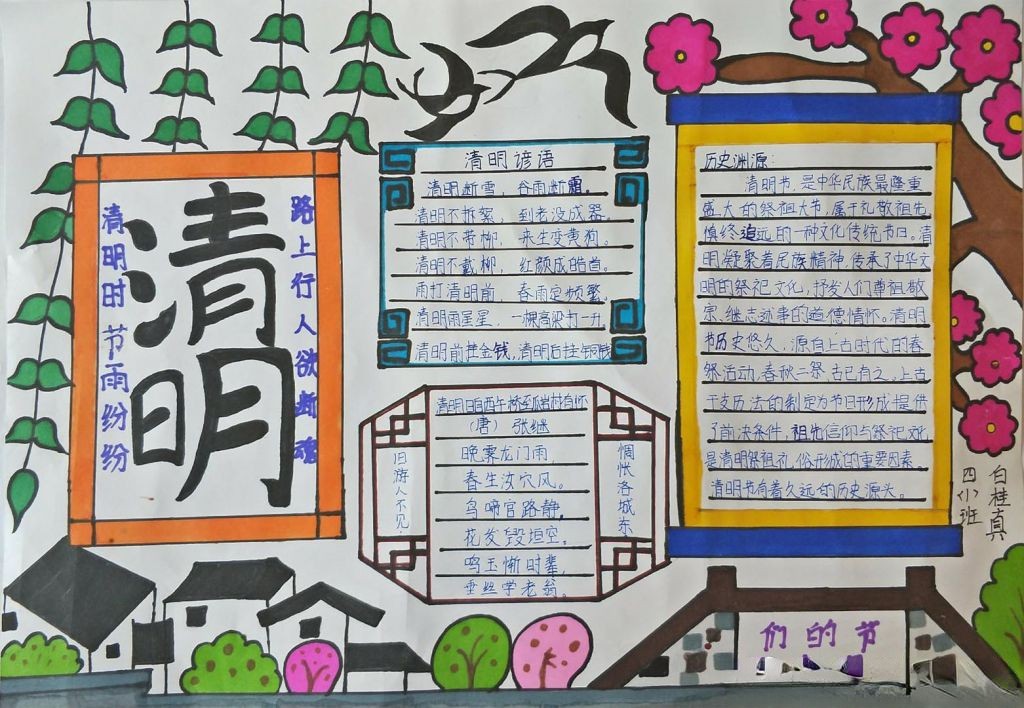 清明
清明时节雨纷纷
路上行人欲断魂
清明谚语
清明断雪，谷雨断霜。
清明不拆絮，到老没成器。
清明不带柳，来生变黄狗。
清明不戴柳，红颜成皓首。
雨打清明前，春雨定频繁。
清明雨星星，一棵高粱打一升
清明前挂金钱，清明后挂铜钱
清明日自西午桥至瓜岩村有怀
（唐） 张继
晚霁龙门雨，
春生汝穴风。
鸟啼官路静，
花发毁垣空。
鸣玉惭时辈，
垂丝学老翁。
旧游人不见，
惆怅洛城东
历史渊源：
清明节，是中华民族最隆重
盛大的祭祖大节，属于礼敬祖先、
慎终追远的一种文化传统节日。清
明凝聚着民族精神，传承了中华文
明的祭祀文化，抒发人们尊祖敬
宗、继志述事的道德情怀。清明
节历史悠久，源自上古时代的春
祭活动，春秋二祭，古已有之。上古
干支历法的制定为节日形成提供
了前决条件，祖先信仰与祭祀文化
是清明祭祖礼俗形成的重要因素。
清明节有着久远的历史源头。
四〈小〉班
白桂真
们的节